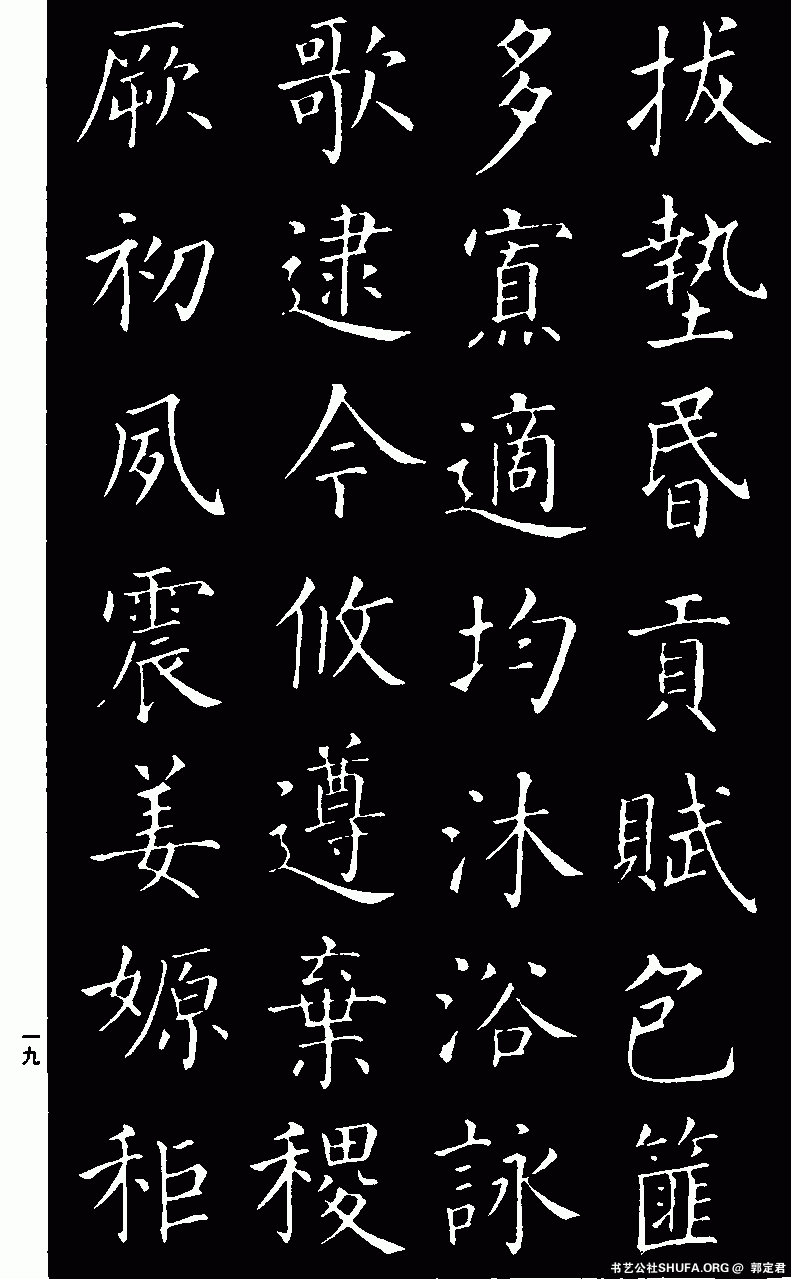 拔墊昬貢賦包篚
多寡適均沐浴詠
歌逮今攸遵棄稷
厥初夙震姜嫄秬
一九
书艺公社SHUFA.ORG @ 郭定君